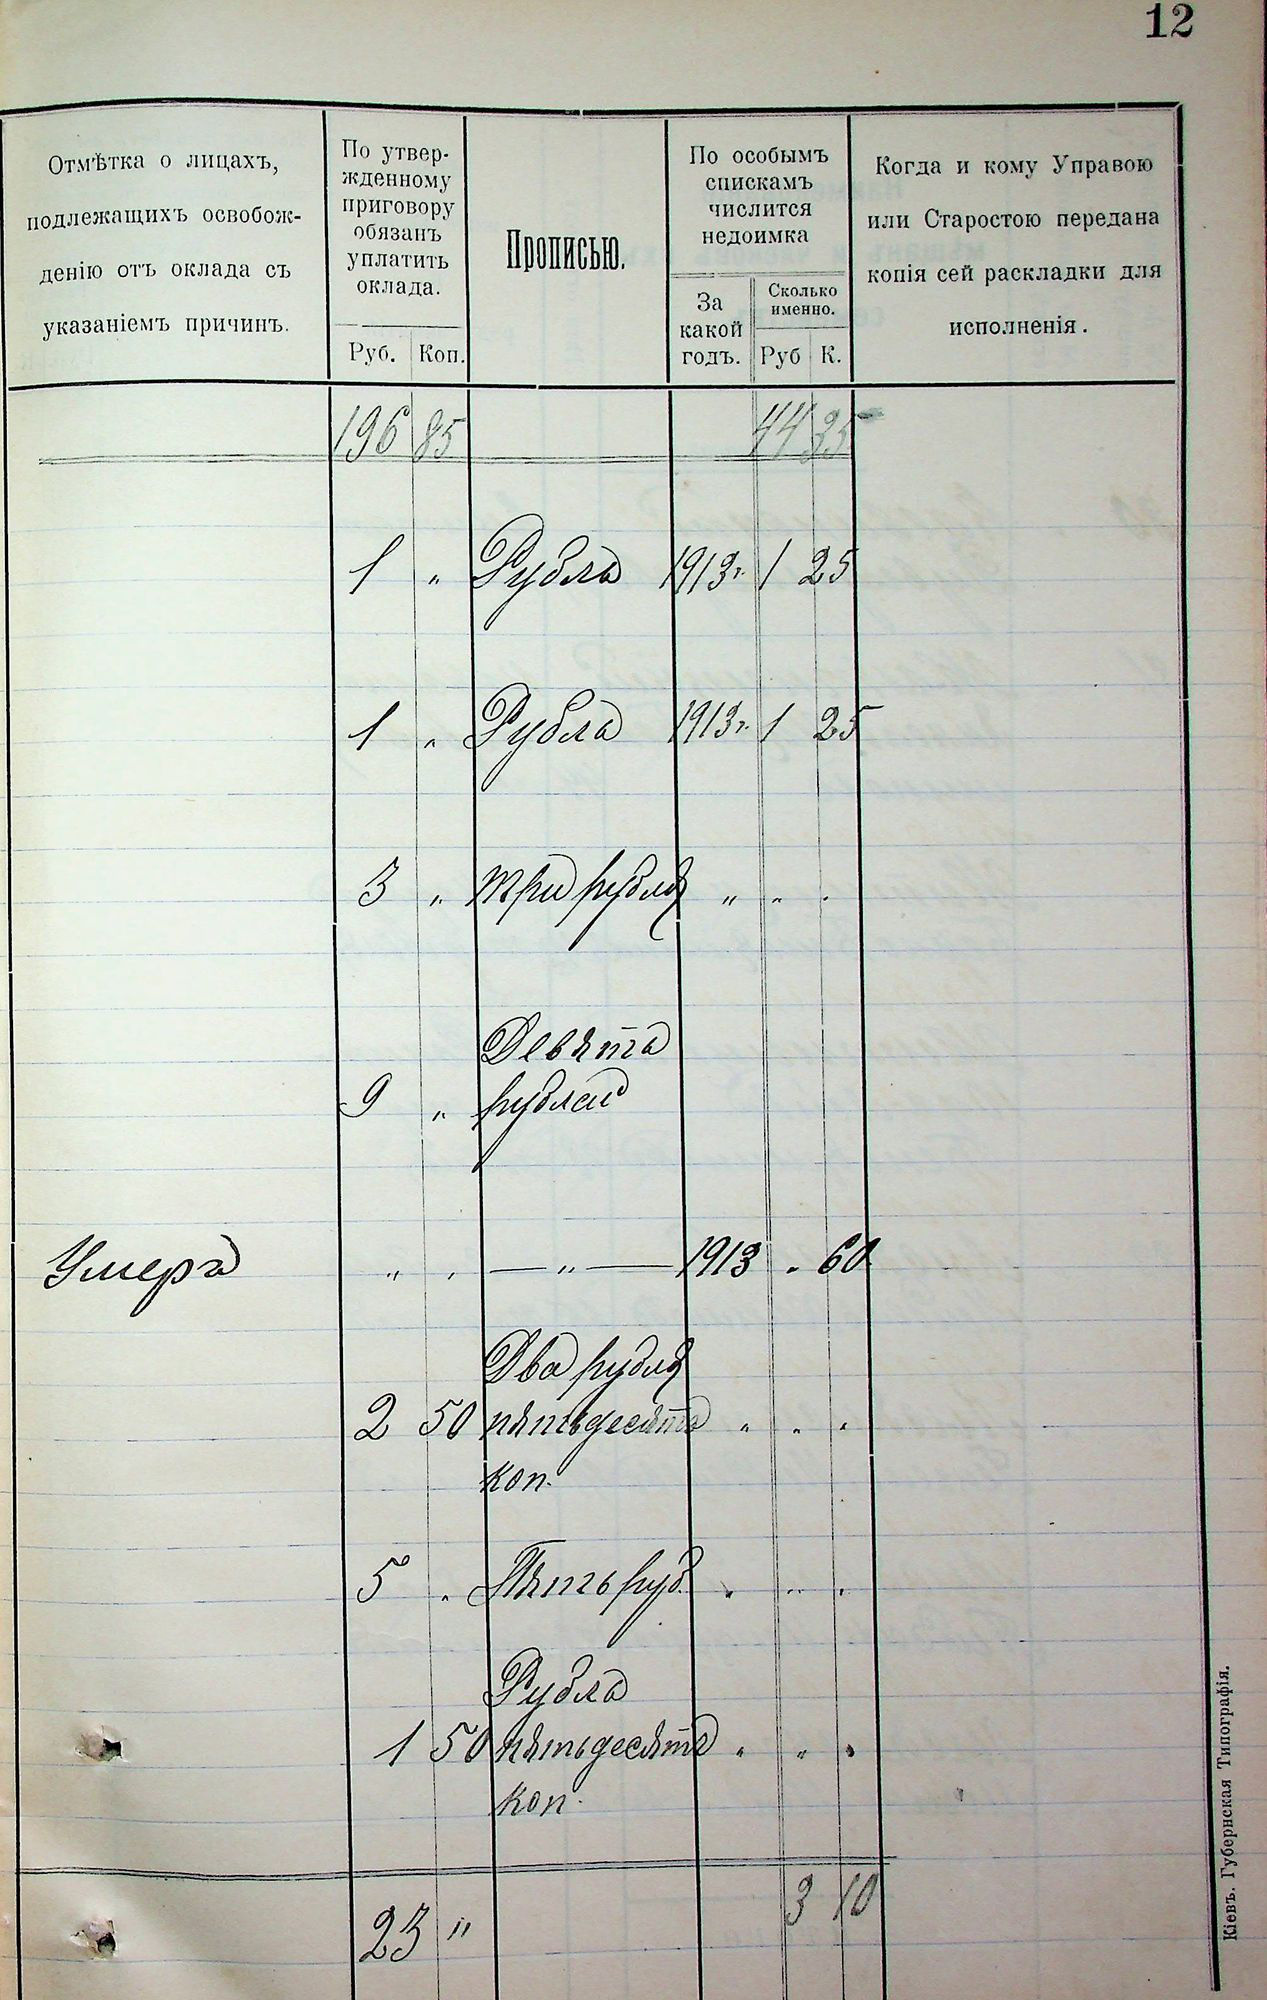 12
Отмѣтка о лицахъ,
подлежащихъ освобож-
денію отъ оклада съ
указаніемъ причинъ.
По утвер-
жденному
приговору
обязанъ
уплатить
оклада.
Руб. Коп.
Прописью.
По особымъ
спискамъ
числится
недоимка
За
какой
годъ.
Сколько
именно.
Руб К.
Когда и кому Управою
или Старостою передана
копія сей раскладки для
исполненія.
196 85 44 35
1 „ Рубль 1913г. 1 25
1 „ Рубль 1913г. 1 25
3 „ три рубля „ „ „
Девять
9 „ рублей
Умеръ „ „ — „ — 1913 „ 60
Два рубля
2 50 пятьдесятъ „ „ „
коп.
5 „ Пять руб. „ „ „
Рубль
1 50 пятьдесятъ „ „ „
коп.
23 „ 3 10
Кіевъ. Губернская Типографія.